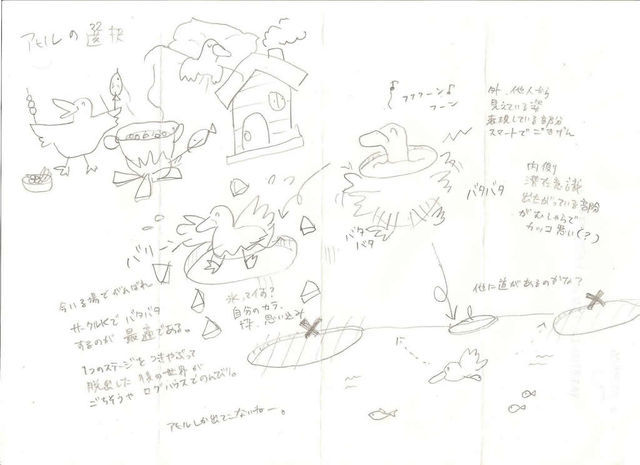 アヒルの選択
フフフーン♪
フーン
外、他人から
見えている姿
表現している部分
スマートでごきげん
内側
潜在意識
出たがっている部分
がむしゃらで
カッコ悪い(?)
バタバタ
バタ
バタ
バリーン
氷って何?
自分のカラ、
枠、思い込み
他に道があるのかな?
今いる場でがんばれ
サークルKでバタバタ
するのが最適である。
1つのステージをつきやぶって
脱出した後の世界が
ごちそうやログハウスでのんびり。
アヒルしか出てこないねー。